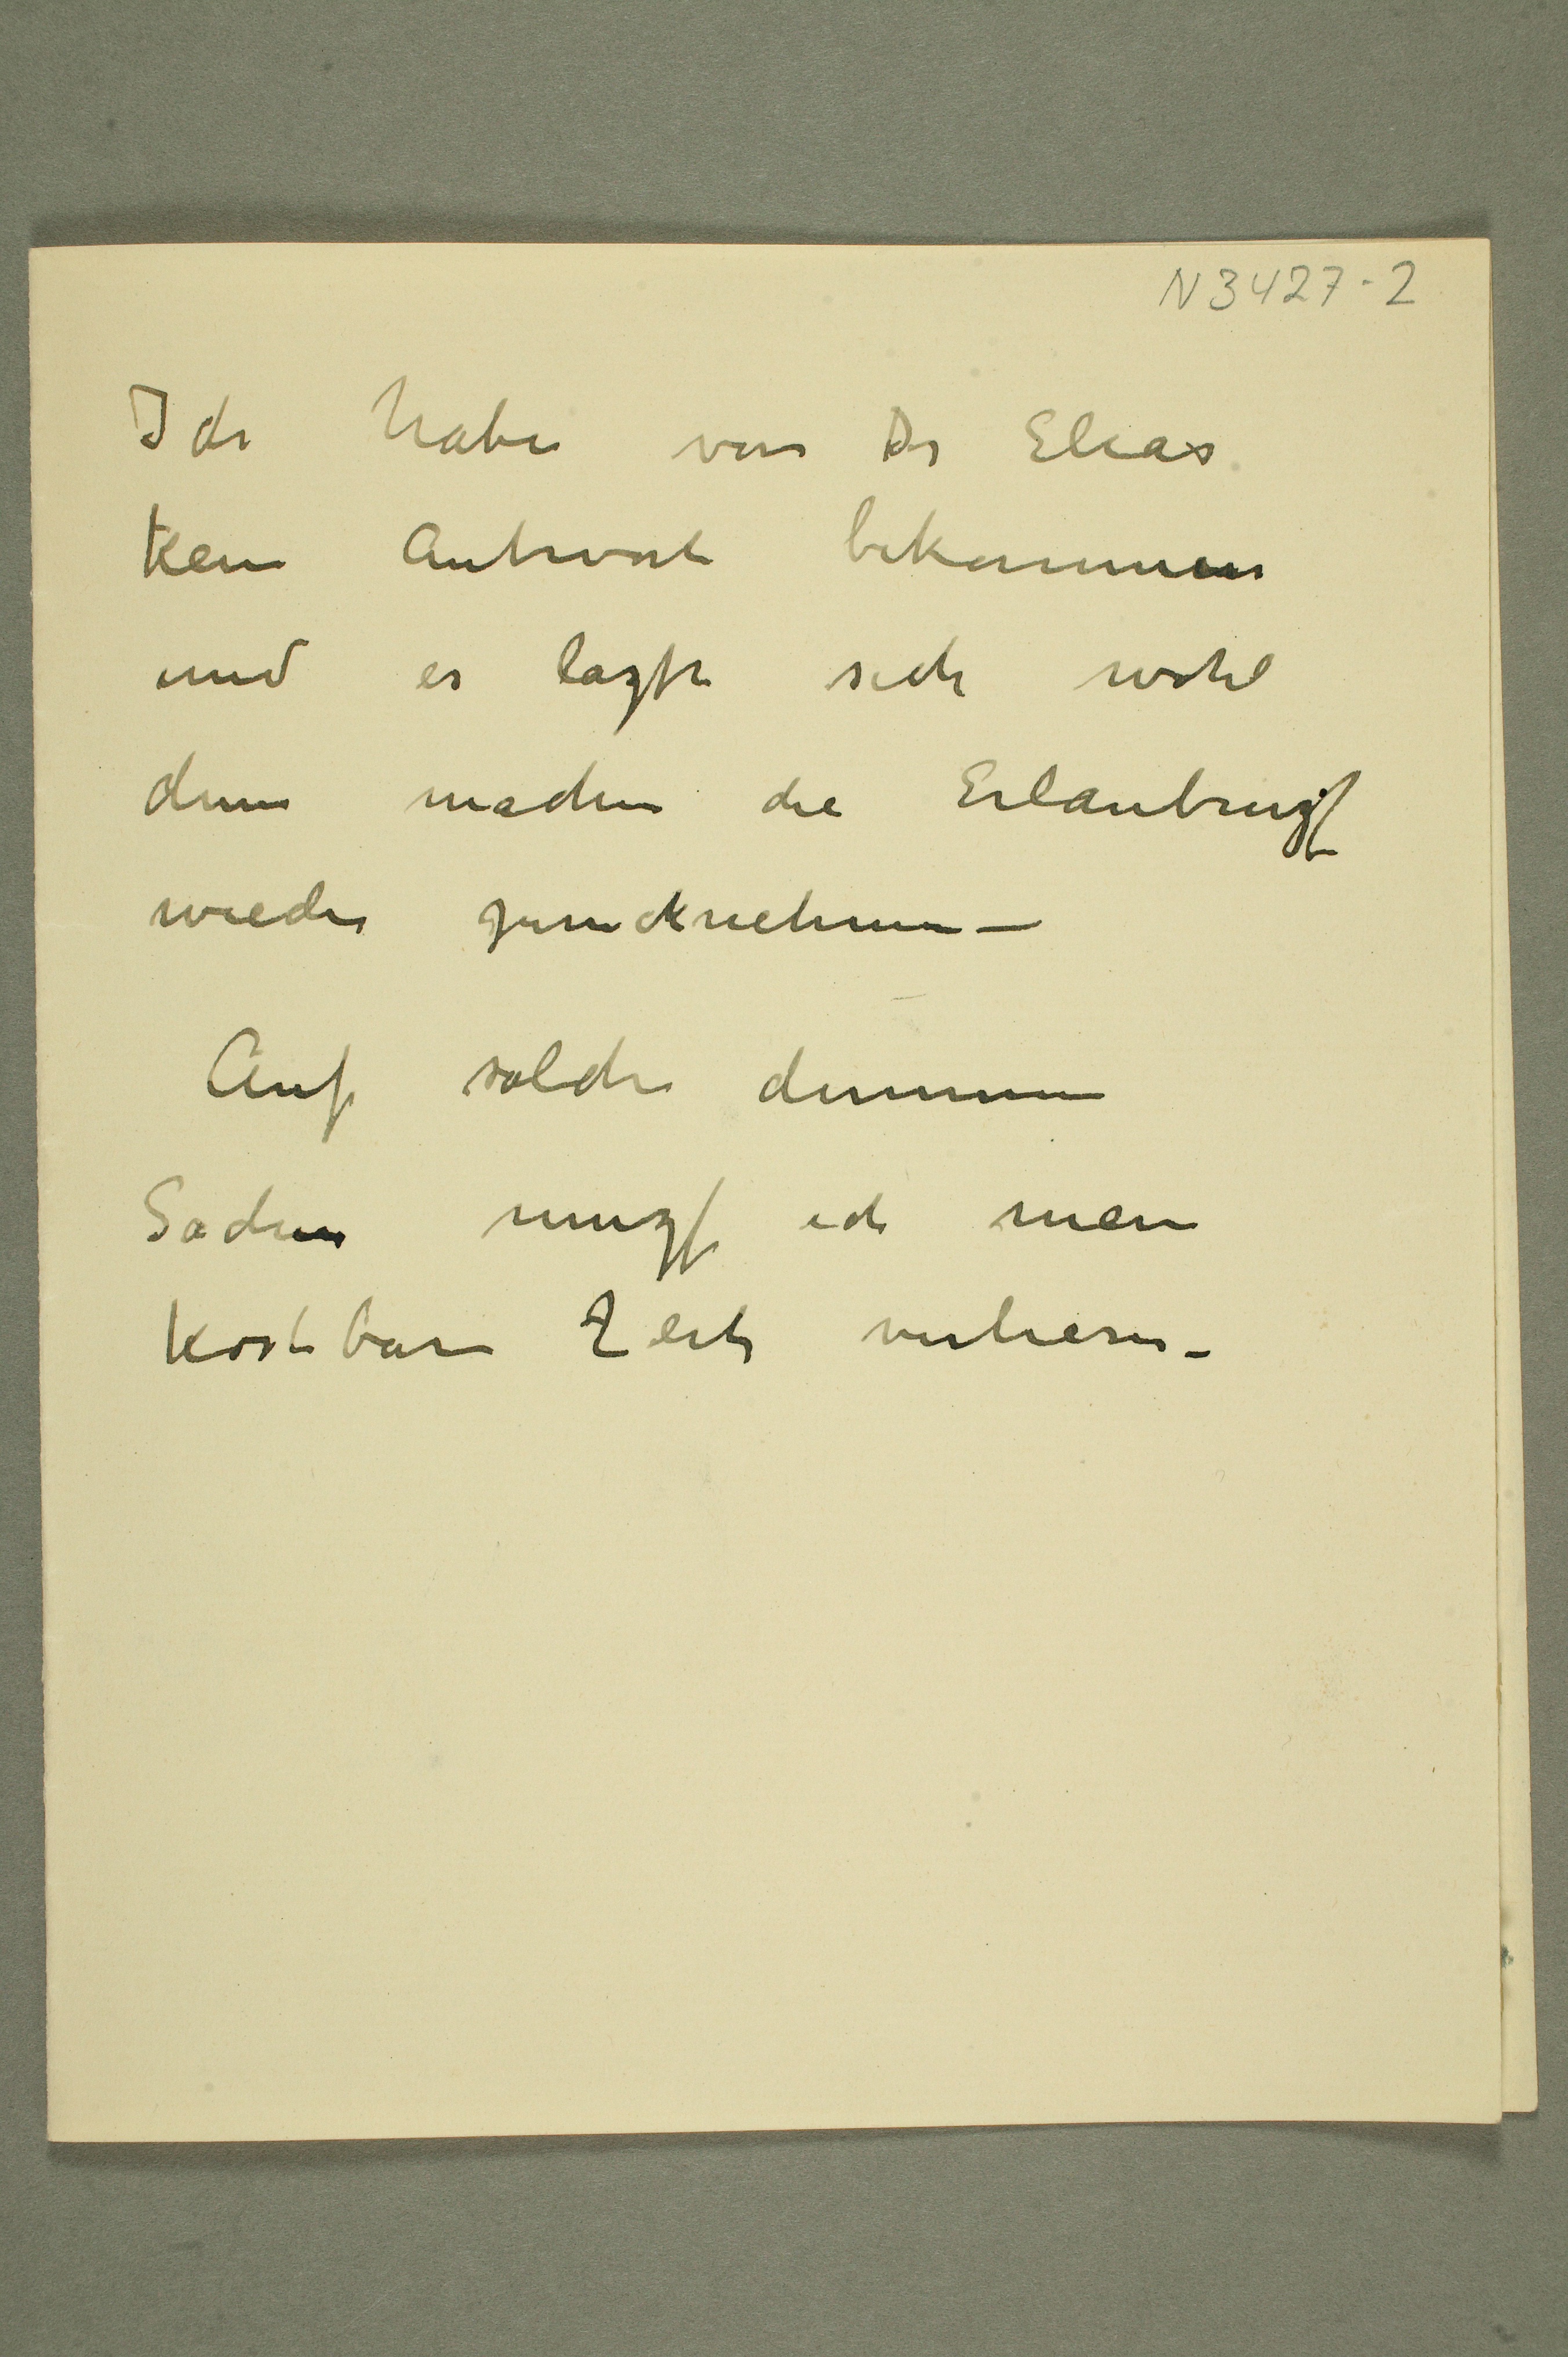 N 3427-2
Ich habe von Dr Elias
kein Antwort bekommen
und es laszt sich wohl
denn machen die Erlaubnisz
wieder zurücknehmen –
Auf solche dummen
Sachen musz ich mein
kostbare Zeit verlieren –